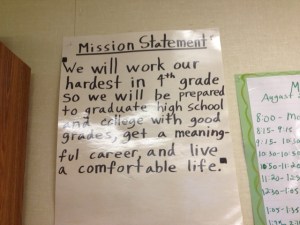 Mission Statement
"We will work our
hardest in 4th grade
so we will be prepared
to graduate high school
and college with good
grades, get a meaning-
ful career, and live
a comfortable life."
M
August
8:00 - Mo
8:15 - 9:15
9:15 - 10:30
10:50 - 11:20
11:20 - 12:30
12:30 - 1:05
1:05 - 1:35